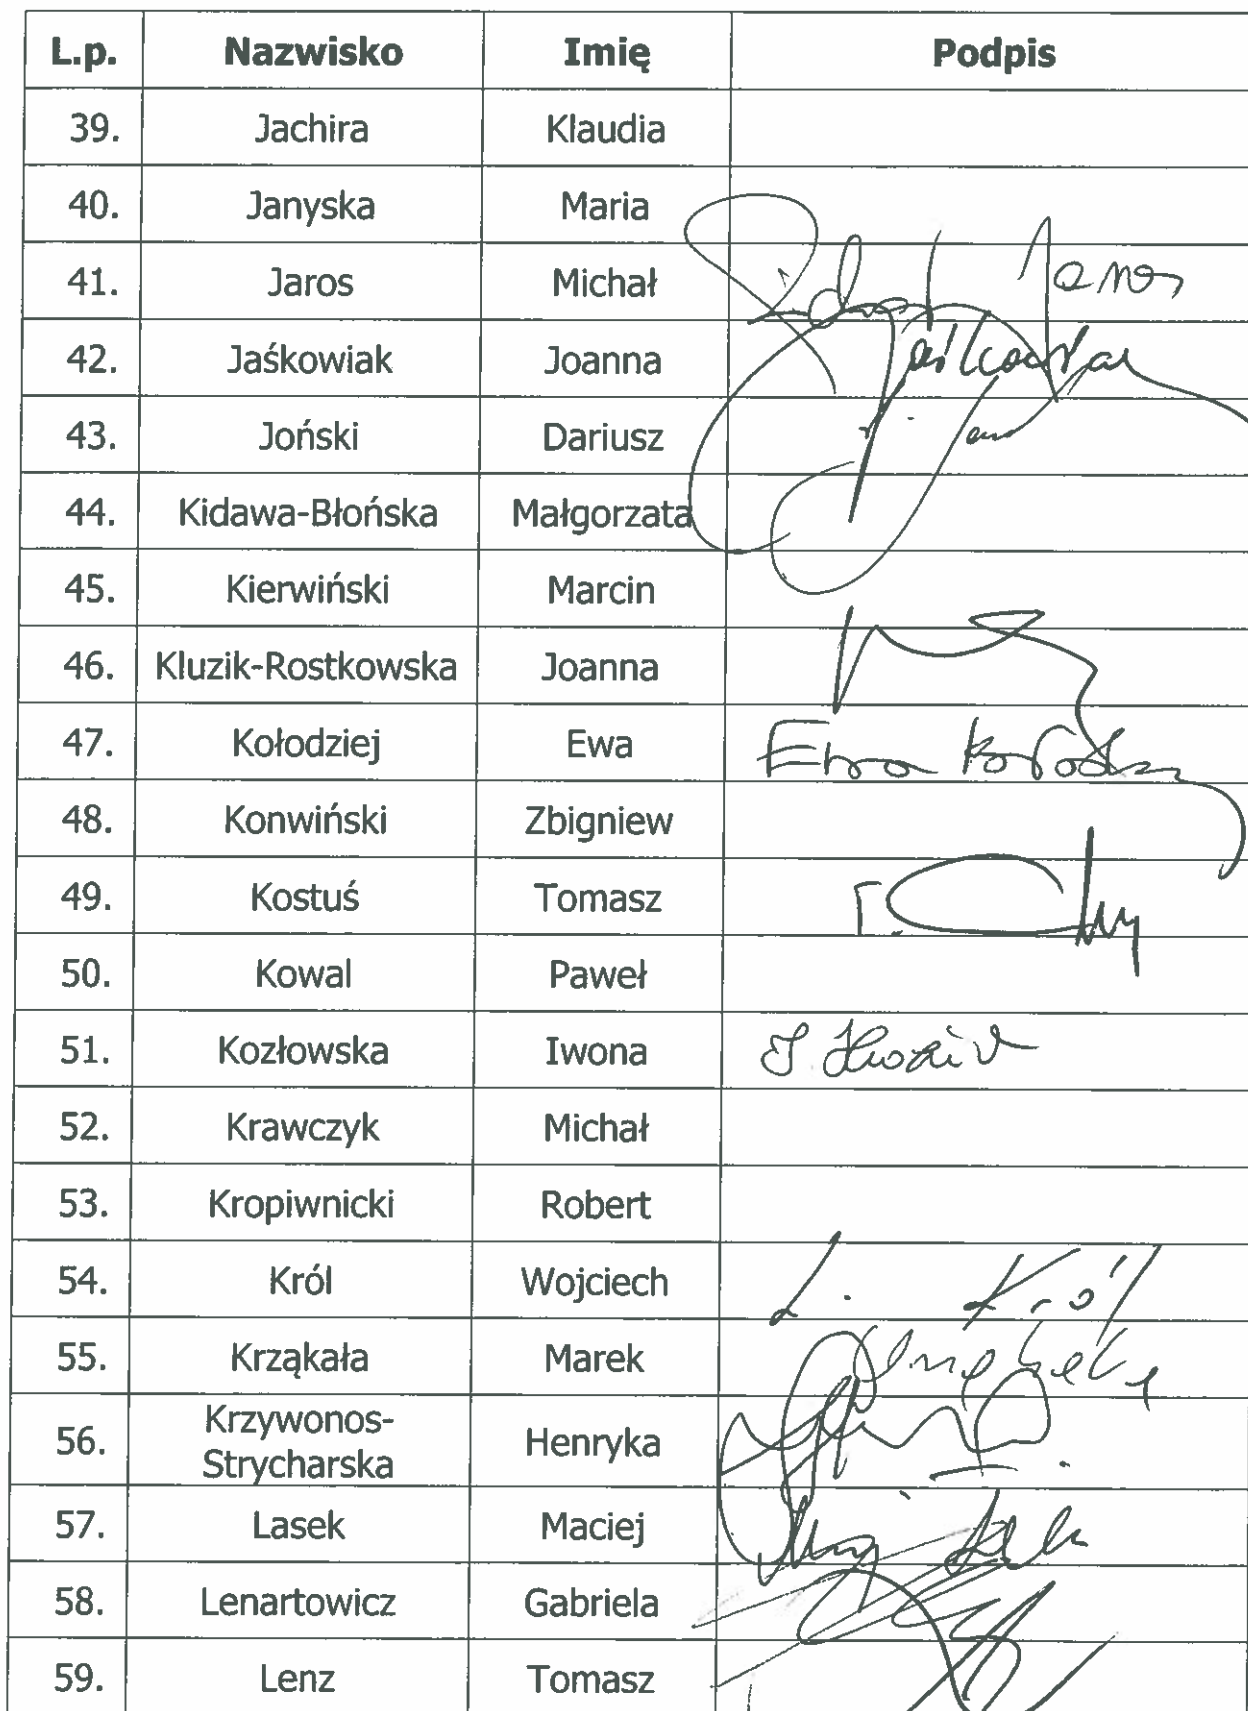 L.p. Nazwisko Imię Podpis
39. Jachira Klaudia
40. Janyska Maria
41. Jaros Michał Jaros
42. Jaśkowiak Joanna Jaśkowiak
43. Joński Dariusz
44. Kidawa-Błońska Małgorzata
45. Kierwiński Marcin
46. Kluzik-Rostkowska Joanna
47. Kołodziej Ewa Ewa Kołodziej
48. Konwiński Zbigniew
49. Kostuś Tomasz T.
50. Kowal Paweł
51. Kozłowska Iwona
52. Krawczyk Michał
53. Kropiwnicki Robert
54. Król Wojciech Król
55. Krząkała Marek
56. Krzywonos-
Strycharska Henryka
57. Lasek Maciej
58. Lenartowicz Gabriela
59. Lenz Tomasz